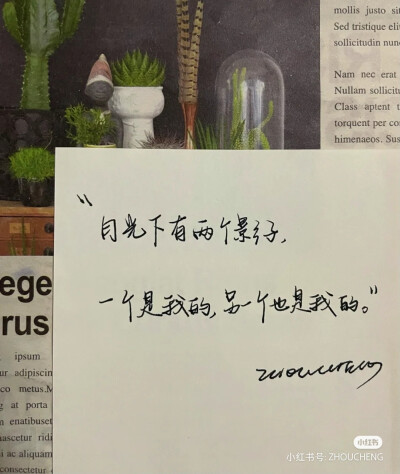 mollis justo
Sed tristique
sollicitudin
Nam nec erat
Nullam
Class aptent
torquent per
himenaeos. Sus
"月光下有两个影子,
一个是我的,另一个也是我的。"
ege
rus
ipsum
adipiscin
co metus.M
at porta
enatibus
nascetur ridi
ac aliquam
consectetur
ZHOUCHENG
小红书
小红书号: ZHOUCHENG